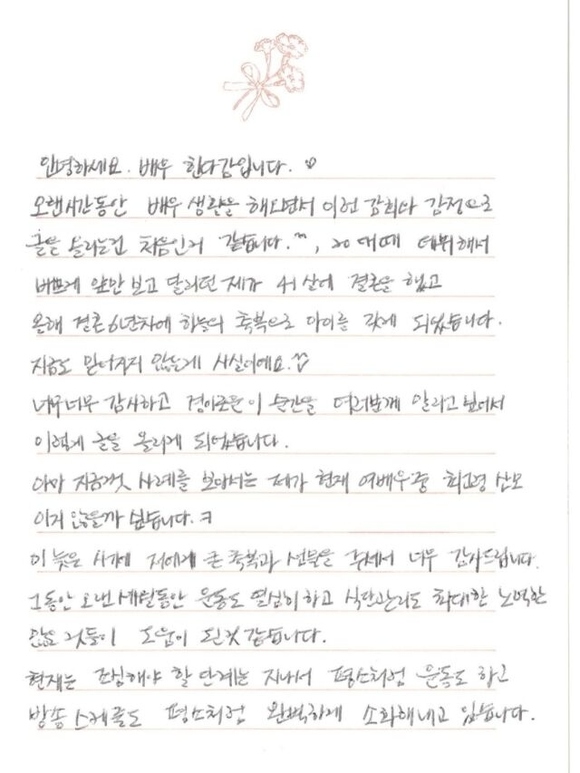 안녕하세요. 배우 한다감입니다.
오랜시간동안 배우 생활을 해오면서 이런 감정으로
글을 올리는건 처음인거 같습니다.^^, 20대때 데뷔해서
바쁘게 앞만 보고 달리던 제가 41살에 결혼을 했고
올해 결혼 6년차에 하늘의 축복으로 아이를 갖게 되었습니다.
지금도 믿어지지 않는게 사실이에요.
너무너무 감사하고 경이로운 이 순간을 여러분께 알리고 싶어서
이렇게 글을 올리게 되었습니다.
아마 지금껏 사례를 보아서는 제가 현재 여배우중 최고령 산모
이지 않을까 싶습니다.ㅋ
이 늦은 시기에 저에게 큰 축복과 선물을 주셔서 너무 감사드립니다.
그동안 오랜세월동안 운동도 열심히 하고 식단관리도 최대한 노력한
것들이 도움이 된것 같습니다.
현재는 조심해야 할 단계는 지나서 평소처럼 운동도 하고
방송 스케줄도 평소처럼 완벽하게 소화해내고 있습니다.